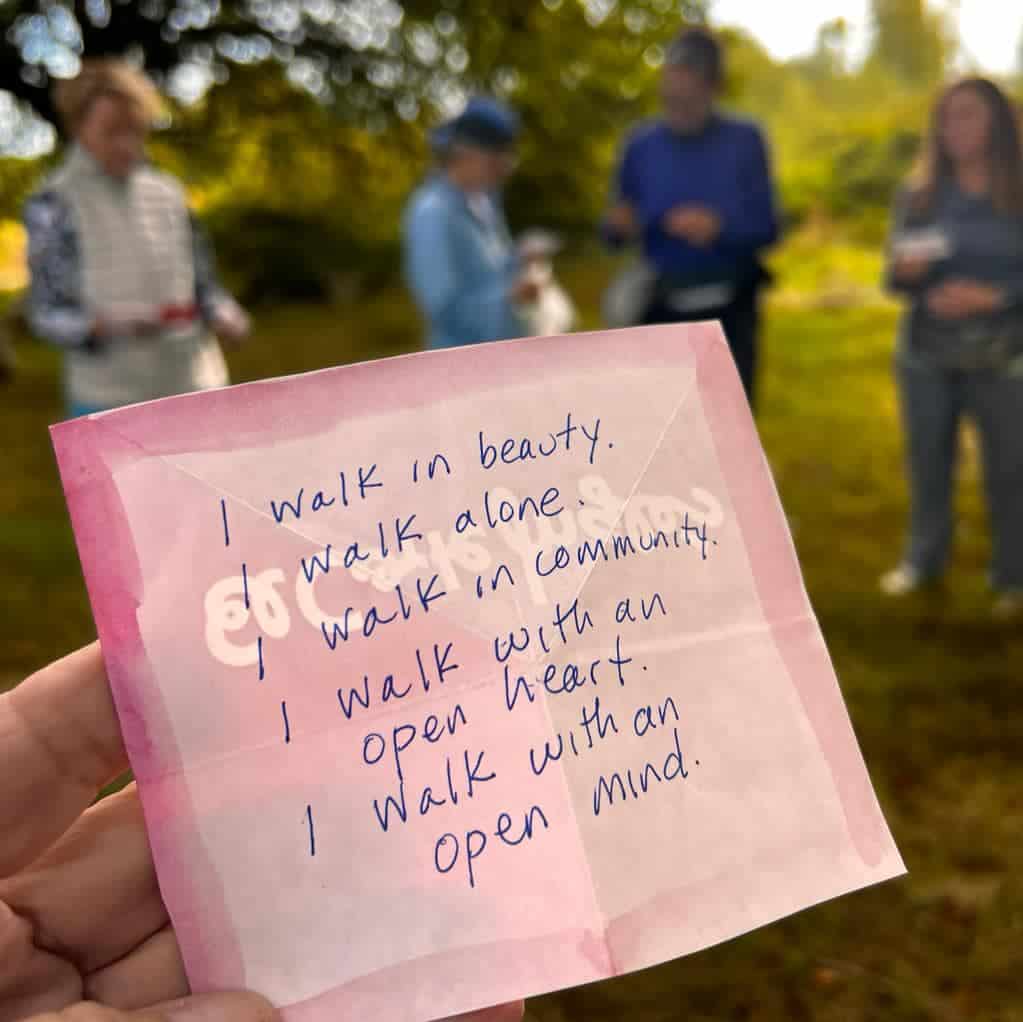 I walk in beauty.
I walk alone.
I walk in community.
I walk with an
open heart.
I walk with an
open mind.